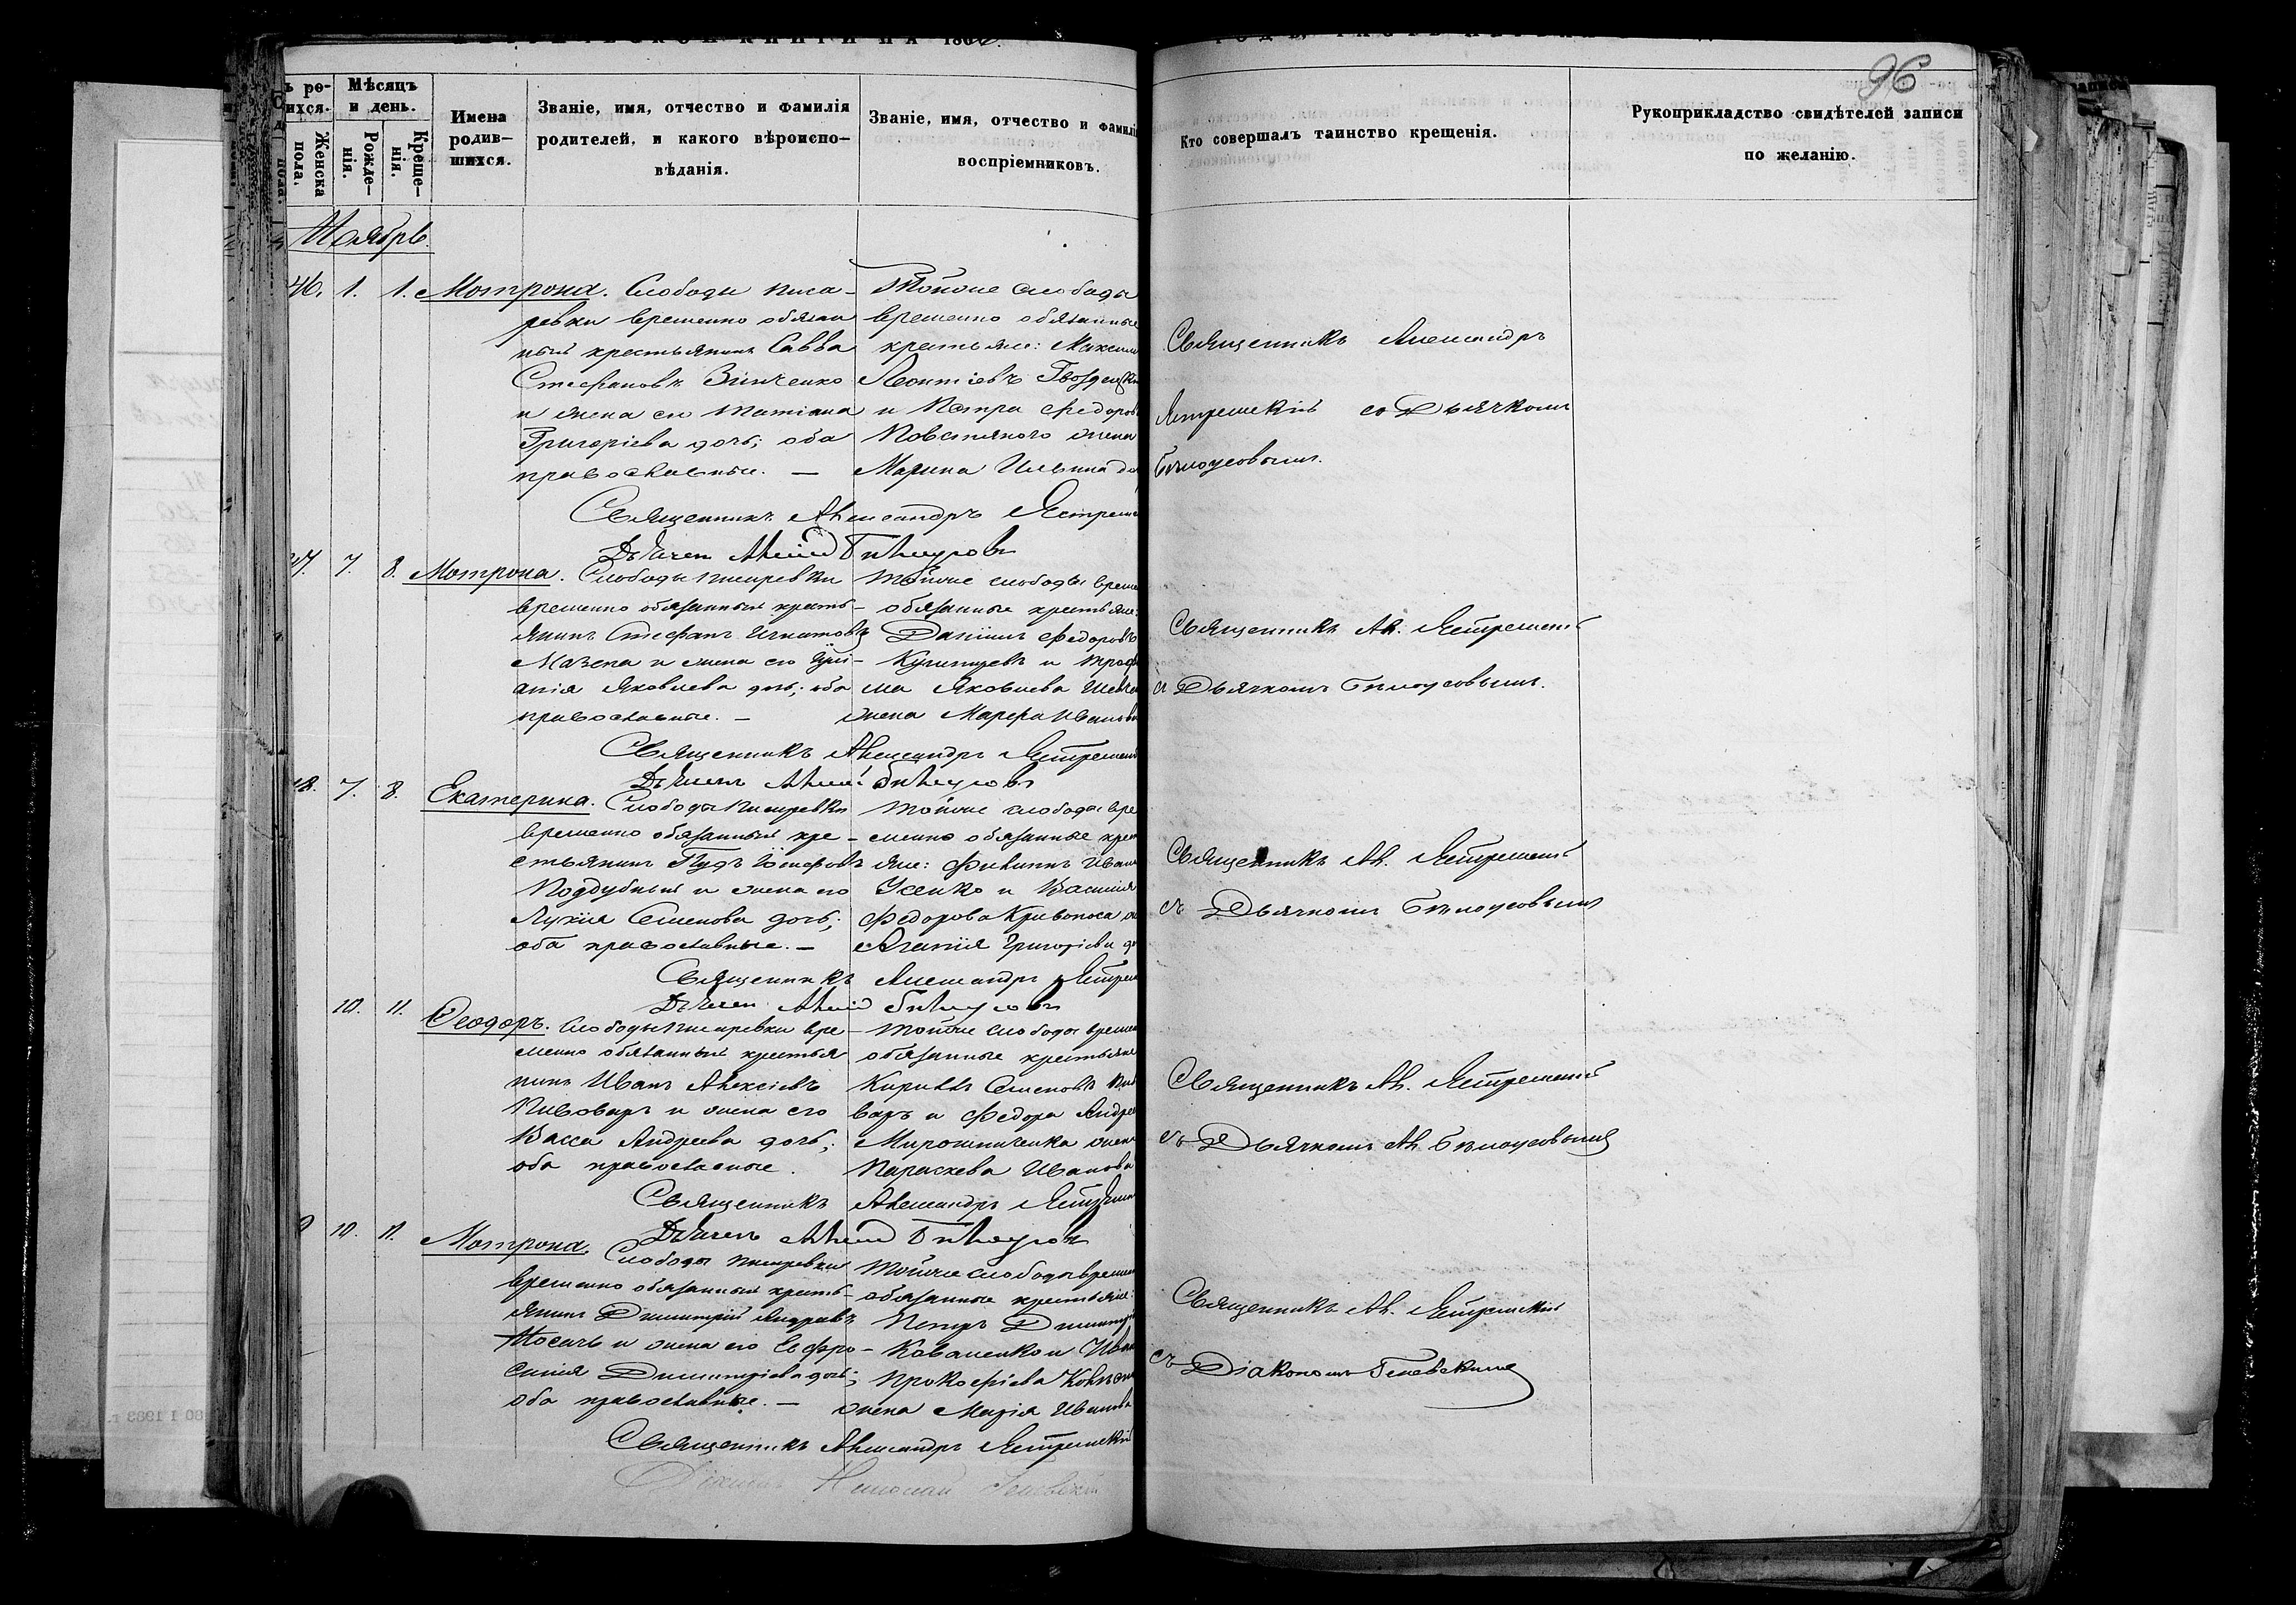 МЕТРИЧЕСКОЙ КНИГИ НА 186
96
ъ ро-
ихся.
Женска
пола.
Мѣсяцъ
и день.
Рожде-
нія.
Креще-
нія.
Имена
родив-
шихся.
Званіе, имя, отчество и фамилія
родителей, и какого вѣроиспо-
вѣданія.
Званіе, имя, отчество и фамилі
воспріемниковъ.
Кто совершалъ таинство крещенія.
Рукоприкладство свидѣтелей записи
по желанію.
Ноябрь.
46. 1. 1. Мотрона.
Слободы Писа-
ревки временно обязан
ный крестьянинъ Савва
Стефановъ Зинченко
и жена его Татіана
Григоріева дочь; оба
православные. —
Тойже слободы
временно обязанные
крестьяне: Максим
Леонтіевъ
и Петра Федоров
жена
Марина Ильина до
Священникъ Александръ
Ястремскій со Дьячкомъ
Бѣлоусовымъ.
Священникъ Александръ Ястрем
Дьячекъ Бѣлоусовъ
47. 7. 8. Мотрона.
Слободы Писаревки
временно обязанный кресть-
янинъ Стефанъ Игнатовъ
Мазепа и жена его Іулі-
анія Яковлева дочь; оба
православные. —
Тойже слободы време
обязанные крестьяне:
Даніилъ Федоровъ
и Троф
ма Яковлева
жена Марфа Иванов
Священникъ Ал. Ястремскій
съ Дьячкомъ Бѣлоусовымъ.
Священникъ Александръ Ястремскі
Дьячекъ Бѣлоусовъ
48. 7. 8. Екатерина.
Слободы Писаревки
временно обязанный кре-
стьянинъ Іосифовъ
Поддубный и жена его
Лукія Семенова дочь;
оба православные. —
Тойже слободы вре
менно обязанные крест
яне: Филиппъ Иван
Усенко и Василія
Федорова Кривоноса
Агапія Григоріева до
Священникъ Ал. Ястремскій
съ Дьячкомъ Бѣлоусовымъ
Священникъ Александръ Ястрем
Дьячекъ Бѣлоусовъ
10. 11. Ѳеодоръ.
Слободы Писаревки вре-
менно обязанный крестья
нинъ Иванъ Алексіевъ
Пивоваръ и жена его
Васса Андреева дочь;
оба православные.
Тойже слободы времен
обязанные крестьяне
Кириллъ Семеновъ Пиво
варъ и Федора Андре
Мирошниченка жена
Параскева Иванова
Священникъ Ал. Ястремскій
съ Дьячкомъ Ал. Бѣлоусовымъ
Священникъ Александръ
Дьячекъ Бѣлоусовъ
9 10. 11. Мотрона.
Слободы Писаревки
временно обязанный кресть-
янинъ Димитрій
и жена его Евфро-
синія Димитріева дочь;
оба православные. —
Тойже слободы времен
обязанные крестьяне:
Петръ Димитр
Коваленко и Иван
Прокофіева
жена Марія Иванова
Священникъ Ал. Ястремскій
съ Діакономъ
Священникъ Александръ Ястремскій
Діаконъ Николай